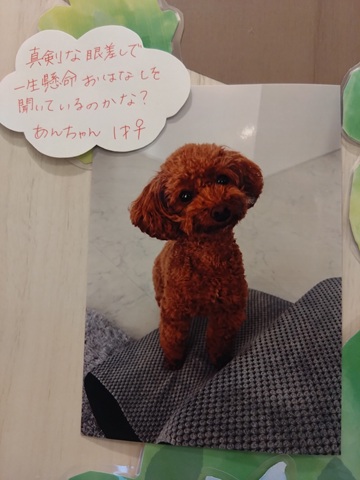 真剣な眼差しで
一生懸命おはなしを
聞いているのかな？
あんちゃん 1才♀